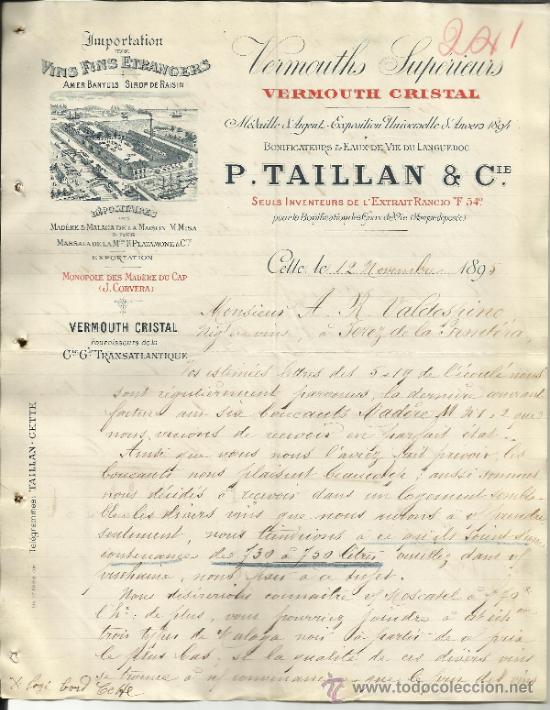 241
Importation
DE
VINS FINS ETRANGERS
AMER BANYULS SIROP DE RAISIN
Vermouths Supérieurs
VERMOUTH CRISTAL
Médaille d'Argent, Exposition Universelle d'Anvers 1894
BONIFICATEURS & EAUX-DE-VIE DU LANGUEDOC
P. TAILLAN & CIE.
SEULS INVENTEURS DE L'EXTRAIT RANCIO "F 54º
pour la Bonification des Eaux de Vie (Marque déposée)
DÉPOSITAIRES
MADÈRE & MALAGA DE LA MAISON M. MISA
MARSALA DE LA MON F. PLATAMONE & CIE
EXPORTATION
MONOPOLE DES MADÈRE DU CAP
(J. CORVERA)
VERMOUTH CRISTAL
fournisseurs de la
CIE GLE TRANSATLANTIQUE
Télégrammes: TAILLAN-CETTE
Cette, le 12 Novembre 1895
Monsieur A. R. Valdespino
Négt en vins, à Jerez de la Frontéra
Vos estimées lettres des 5 & 19 de l'écoulé nous
sont régulièrement parvenues, la dernière
facture aux six boucauts Madère M 41.2 que
nous venons de recevoir en parfait état.
Ainsi que vous nous l'aviez fait prévoir, les
boucauts nous plaisent beaucoup; aussi sommes
nous décidés à recevoir dans un logement sembla-
ble les divers vins que nous aurons à prendre
seulement, nous tiendrions à ce qu'ils soient
contenance de 730 à 750 litres, veuillez dans
prochaine, nous fixer à ce sujet.
Nous désirerions connaître Moscatel à
l'h: de plus, vous pourriez joindre à
trois types de Malaga noir à partir de prix
le plus bas; si la qualité de ces divers vins
se trouve à convenance que le prix des vins
x logé bord Cette
www.todocoleccion.net